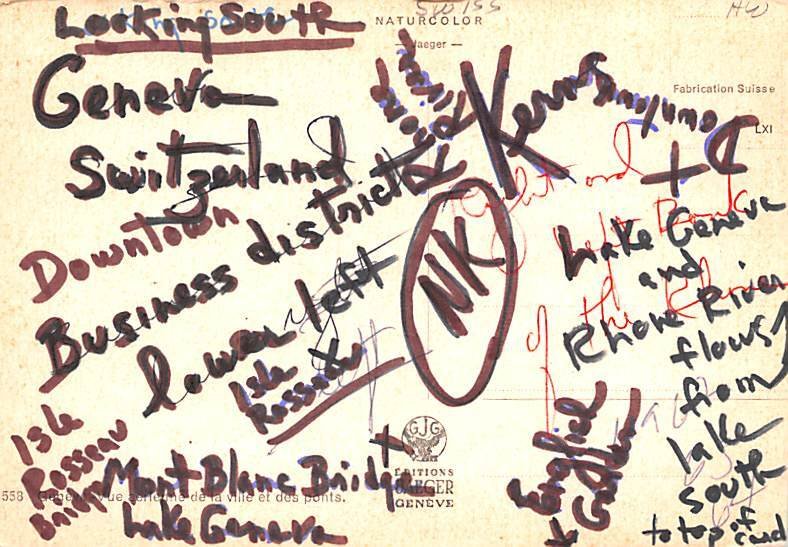 Looking South
SWISS
NATURCOLOR
Jaeger —
Geneva
Fabrication Suisse
LXI
Switzerland
Downtown
Business district
lower left
NK
Right and
Left Bank
of the Rhone
Lake Geneva
and
Rhone River
flows
from
lake
south
to top of card
Isle
Rosseau
Isle
Rosseau
Bridge
Mont Blanc Bridge
Lake Geneva
English
Garden
GJG
EDITIONS
JAEGER
GENÈVE
558
vue aérienne de la ville et des ponts.